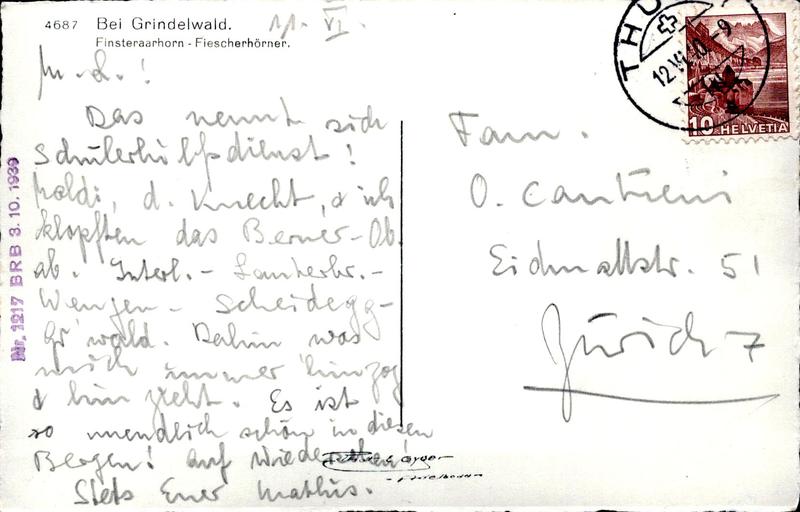 4687 Bei Grindelwald.
Finsteraarhorn - Fiescherhörner.
11. VI.
M. L.!
Das nennt sich
Schülerhilfsdienst!
Poldi, d. Knecht, & ich
klopften das Berner-Ob.
ab. Interl.- Lauterbr.-
Wengen - Scheidegg-
Gr'wald. Dahin was
mich immer hinzog
& hinzieht. Es ist
so unendlich schön in diesen
Bergen! Auf Wiedersehen!
Stets Euer Mathis.
Nr. 1217 BRB 3.10.1939
THU
12.VI.40.-9
10 HELVETIA
Fam.
O. Cantieni
Eidmattstr. 51
Zürich 7